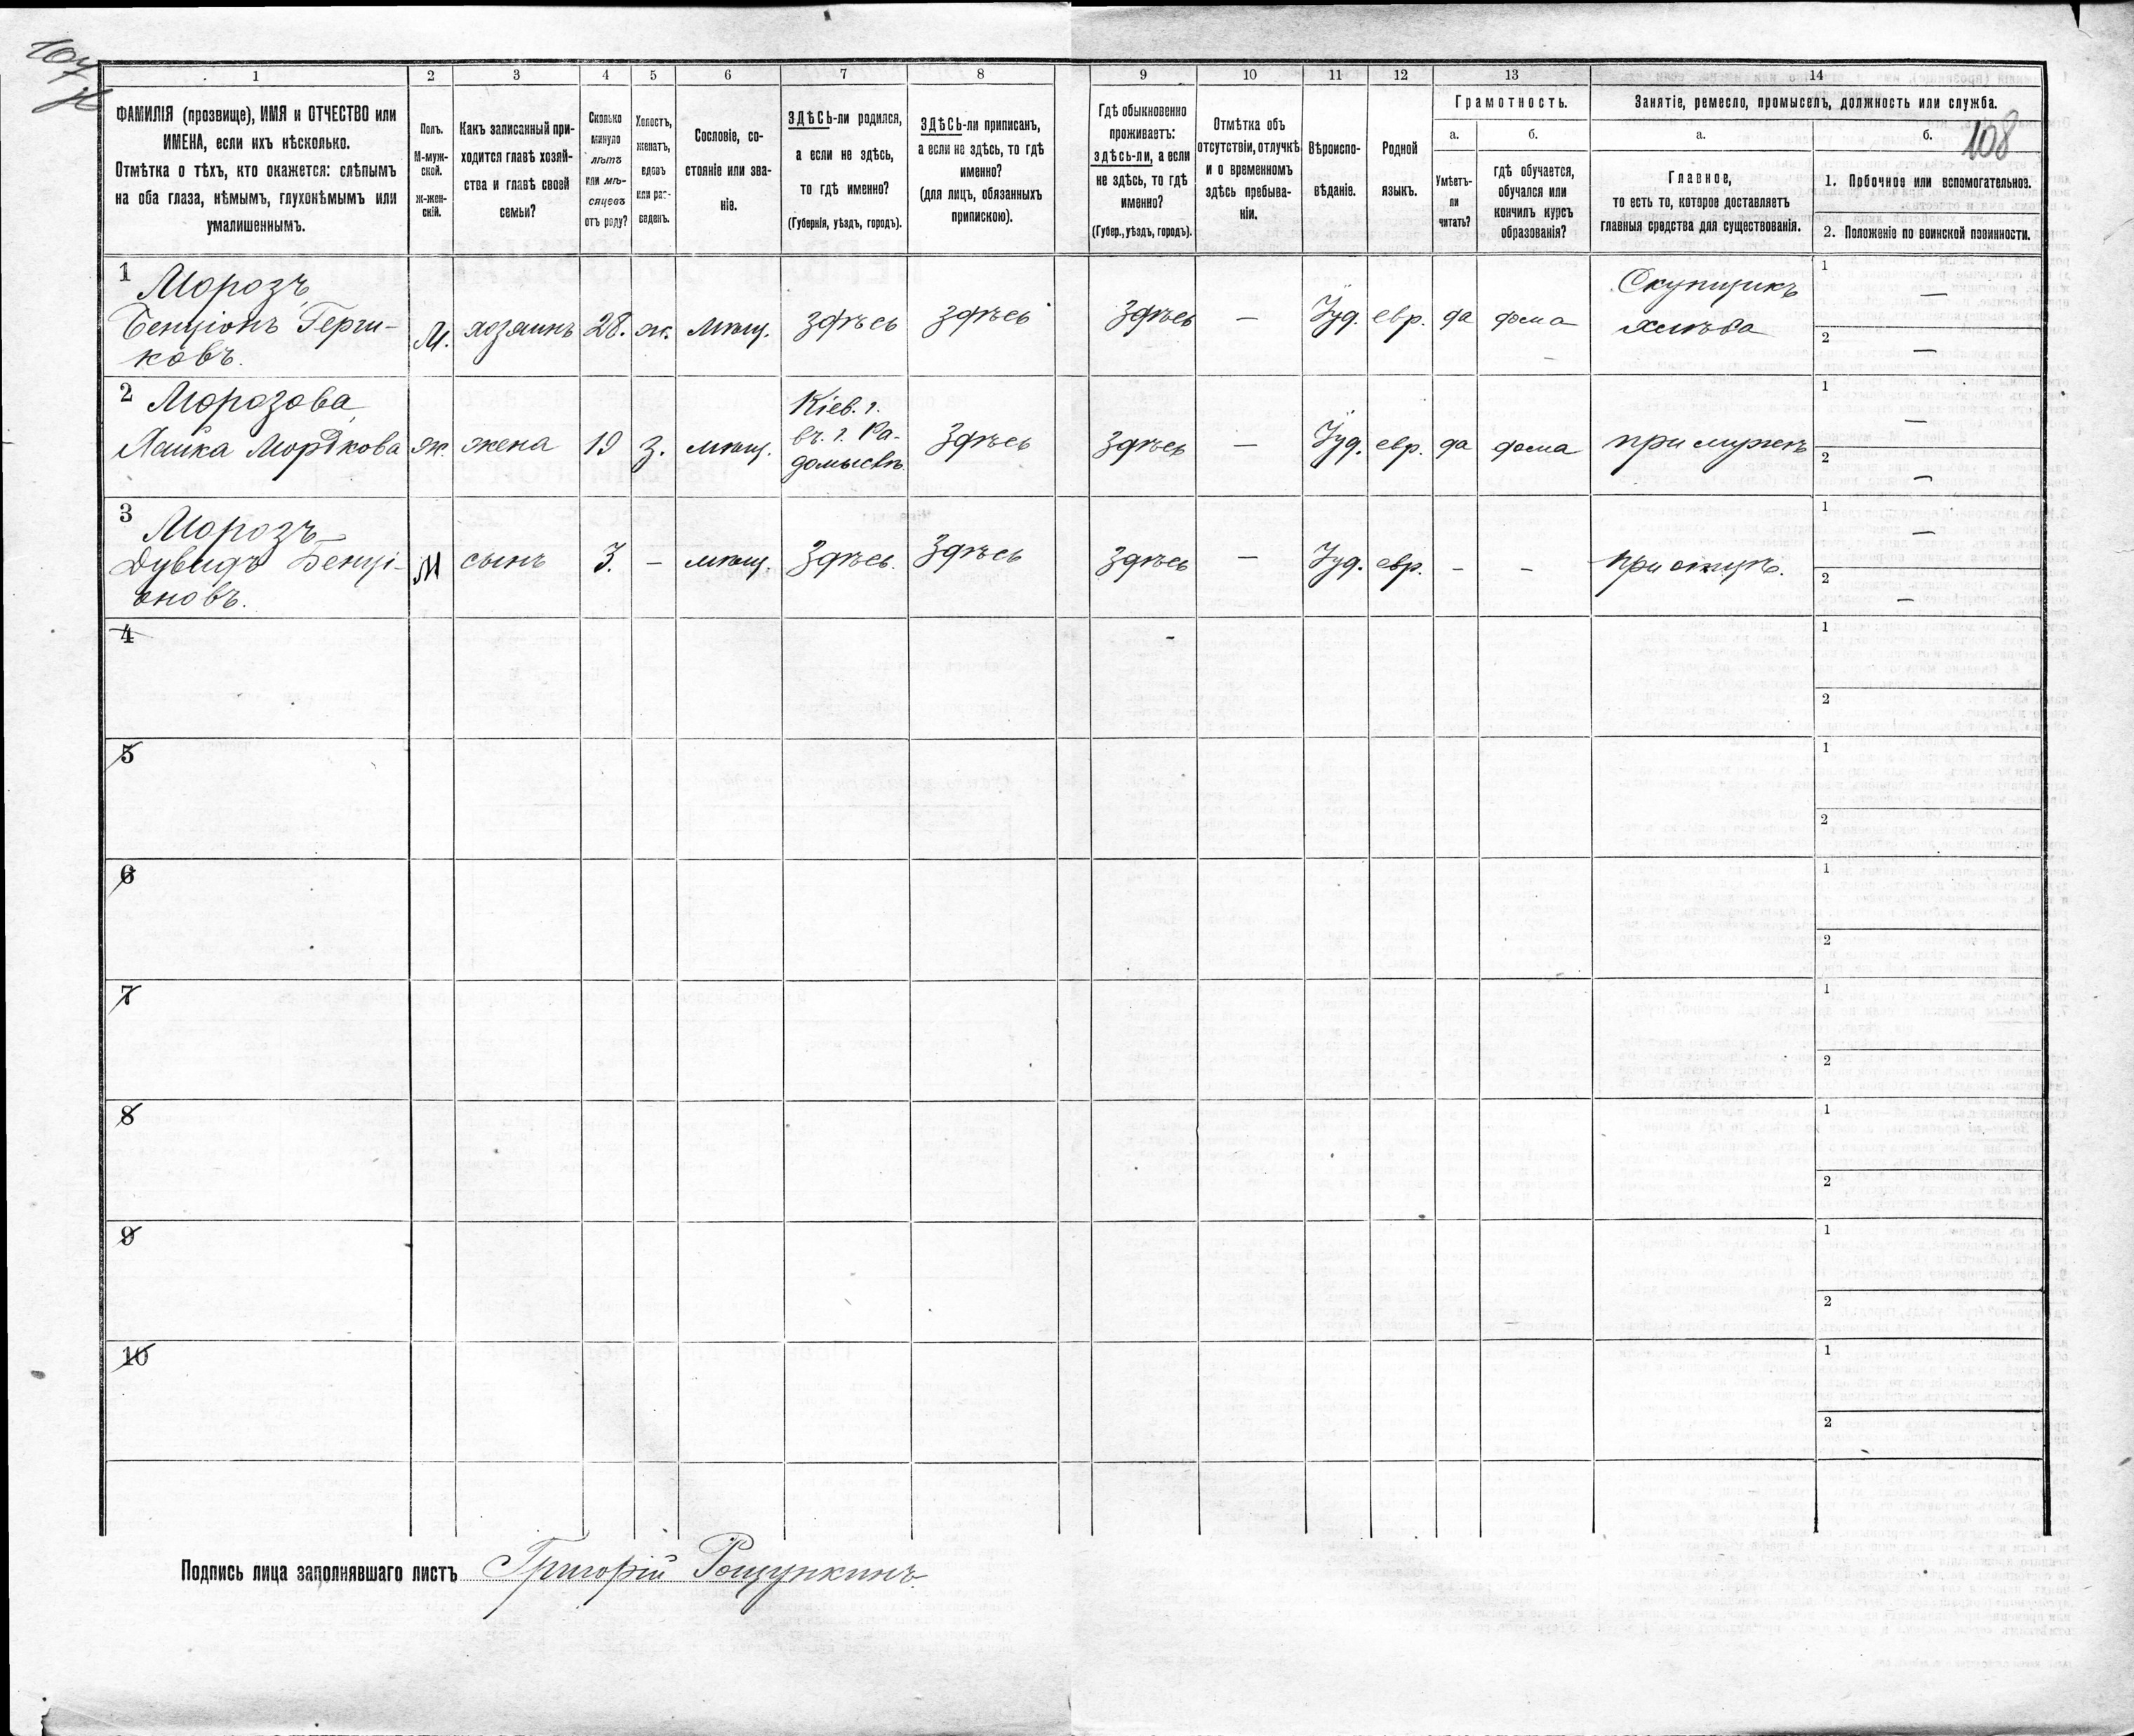 107
108
1 2 3 4 5 6 7 8 9 10 11 12 13 14
ФАМИЛІЯ (прозвище), ИМЯ и ОТЧЕСТВО или
ИМЕНА, если ихъ нѣсколько.
Отмѣтка о тѣхъ, кто окажется: слѣпымъ
на оба глаза, нѣмымъ, глухонѣмымъ или
умалишеннымъ.
Полъ.
М-муж-
ской.
Ж-жен-
скій.
Какъ записанный при-
ходится главѣ хозяй-
ства и главѣ своей
семьи?
Сколько
минуло
лѣтъ
или мѣ-
сяцевъ
отъ роду?
Холостъ,
женатъ,
вдовъ
или раз-
веденъ.
Сословіе, со-
стояніе или зва-
ніе.
ЗДѢСЬ-ли родился,
а если не здѣсь,
то гдѣ именно?
(Губернія, уѣздъ, городъ).
ЗДѢСЬ-ли приписанъ,
а если не здѣсь, то гдѣ
именно?
(для лицъ, обязанныхъ
припискою).
Гдѣ обыкновенно
проживаетъ:
здѣсь-ли, а если
не здѣсь, то гдѣ
именно?
(Губер., уѣздъ, городъ).
Отмѣтка объ
отсутствіи, отлучкѣ
и о временномъ
здѣсь пребыва-
ніи.
Вѣроиспо-
вѣданіе.
Родной
языкъ.
Грамотность.
а.
Умѣетъ-
ли
читать?
б.
гдѣ обучается,
обучался или
кончилъ курсъ
образованія?
Занятіе, ремесло, промыселъ, должность или служба.
а.
Главное,
то есть то, которое доставляетъ
главныя средства для существованія.
б.
1. Побочное или вспомогательное.
2. Положеніе по воинской повинности.
1
Морозъ,
Бенціонъ Герш-
ковъ.
М.
хозяинъ
28.
ж.
мѣщ.
здѣсь
здѣсь
здѣсь
—
Іуд.
евр.
да
дома
Скупщикъ
хлѣба
1 —
2 —
2
Морозова,
Лайка Мордкова
ж.
жена
19
з.
мѣщ.
Кіев. г.
въ г. Ра-
домыслѣ.
здѣсь
здѣсь
—
Іуд.
евр.
да
дома
при мужѣ
1 —
2 —
3
Морозъ
Дувидъ Бенці-
оновъ.
М
сынъ
3.
—
мѣщ.
здѣсь.
здѣсь
здѣсь
—
Іуд.
евр.
-
-
при отцѣ.
1 —
2 —
4
1
2
5
1
2
6
1
2
7
1
2
8
1
2
9
1
2
10
1
2
Подпись лица заполнявшаго листъ Григорій Рощупкинъ.